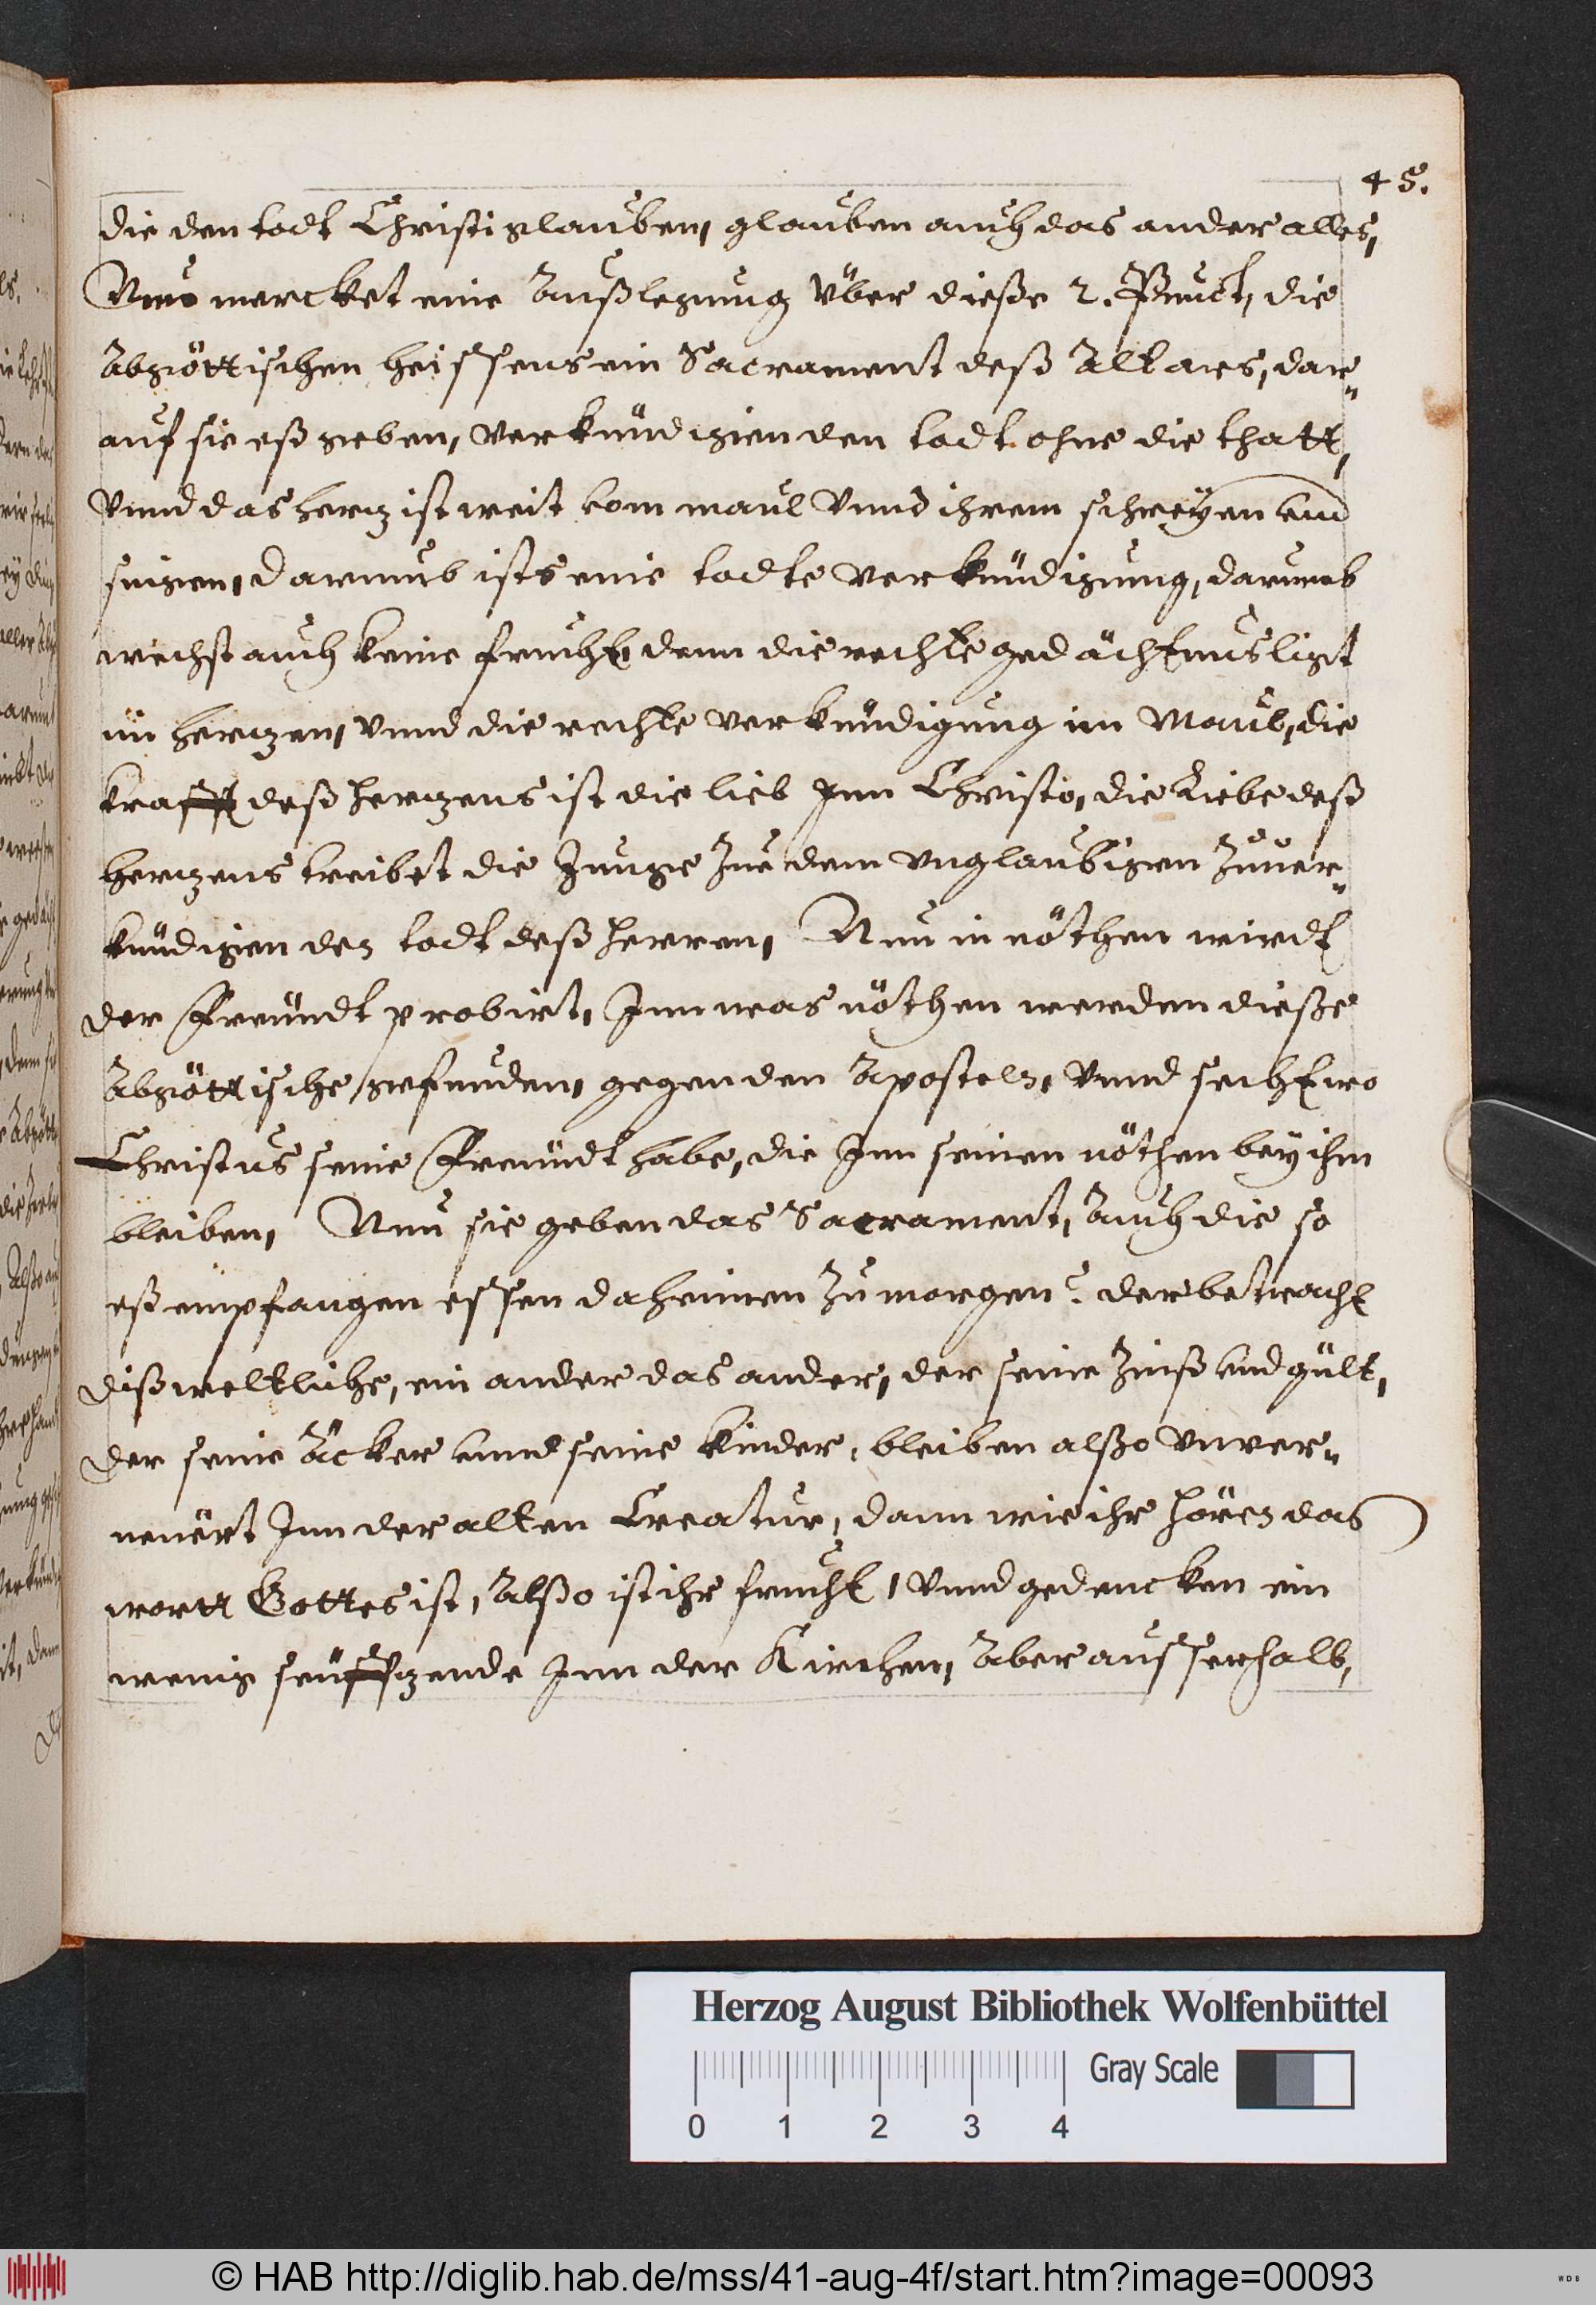 45.
die den todt Christi glauben, glauben auch das ander alles,
Nun mercket eine Außlegung vber dieße 2. Punct, die
Abgöttischen heissens ein Sacrament deß Altars, dar„
auf sie eß geben, verkündigien den todt ohne die thatt,
vnnd das hertz ist weit vom maul vnnd ihrem schreÿen vnd
singen, darumb ists eine todte verkündigung, darumb
wechst auch keine frucht, denn die rechte gedächtnus ligt
im hertzen, vnnd die rechte verkündigung im Maul, die
krafft deß hertzens ist die lieb Inn Christo, die Liebe deß
hertzens treibet die Zunge Zue dem vnglaubigen Zuuer„
kündigien den todt deß herren, Nun in nöthen wirdt
der Freündt probirt, Inn was nöthen werden dieße
Abgöttische gefunden, gegen den Aposteln, vnnd secht wo
Christus seine Freündt habe, die Inn seinen nöthen bey ihm
bleiben, Nun sie geben das Sacrament, Auch die so
eß empfangen essen daheimen Zu morgen? der betracht
diß weltliche, ein ander das ander, der seine Zinß vnd gült,
der seine Äcker vnnd seine Kinder, bleiben alßo vnver„
neüert Inn der alten Creatur, dann wie ihr hören das
wortt Gottes ist, Alßo ist ihr frucht, vnnd gedencken ein
wenig seüffzende Inn der Kirchen, Aber ausserhalb,
Herzog August Bibliothek Wolfenbüttel
Gray Scale
0 1 2 3 4
© HAB http://diglib.hab.de/mss/41-aug-4f/start.htm?image=00093
WDB